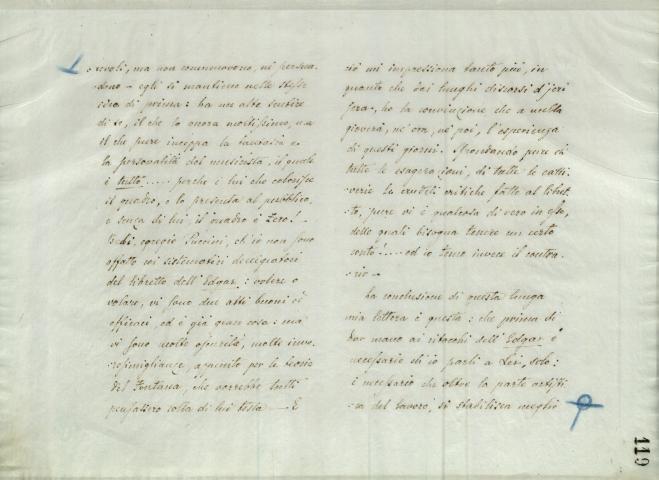 -revoli, ma non commuovono, nè persua-
-dono - egli si mantiene nelle stesse
idee di prima: ha un alto sentire
di se, il che lo onora moltissimo, ma
il che pure inceppa la fantasia e
la personalità del musicista, il quale
è tutto..... perchè è lui che colorisce
il quadro, e lo presenta al pubblico,
e senza di lui il quadro è Zero! -
Vedi, egregio Puccini, ch'io non sono
affatto coi sistematici denigratori
del libretto dell'Edgar: volere o
volare, vi sono due atti buoni ed
efficaci, ed è già gran cosa: ma
vi sono molte oscurità, molte inve-
-rosimiglianze, appunto per le teorie
del Fontana, che vorrebbe tutti
pensassero colla di lui testa - E
ciò mi impressiona tanto più, in
quanto che dai lunghi discorsi d'jeri
sera, ho la convinzione che a nulla
gioverà, nè ora, nè poi, l'esperienza
di questi giorni. Sfrondando pure di
tutte le esagerazioni, di tutte le catti-
-verie le crudeli critiche fatte al libret-
-to, pure vi è qualcosa di vero in esse,
delle quali bisogna tenere un certo
conto!.... ed io temo invece il contra-
-rio -
La conclusione di questa lunga
mia lettera è questa: che prima di
dar mano ai ritocchi dell'Edgar è
necessario ch'io parli a Lei, solo:
è necessario che oltre la parte artisti-
-ca del lavoro, si stabilisca meglio
119